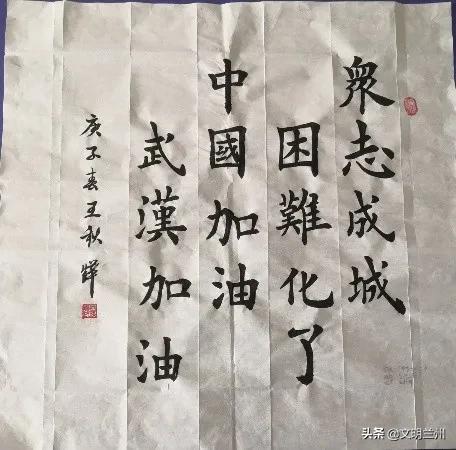 衆志成城
困難化了
中國加油
武漢加油
庚子春王秋
头条 @文明兰州